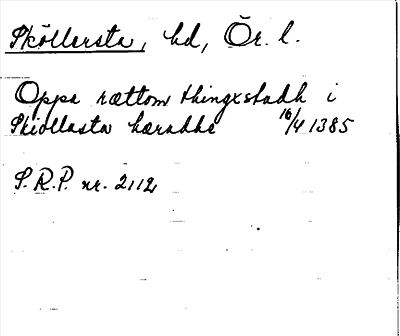 Sköllersta, hd, Ör. l.
Oppa rættom thingxstadh i
Skiøllasta hæradhe 16/4 1385
S.R.P. nr. 2112